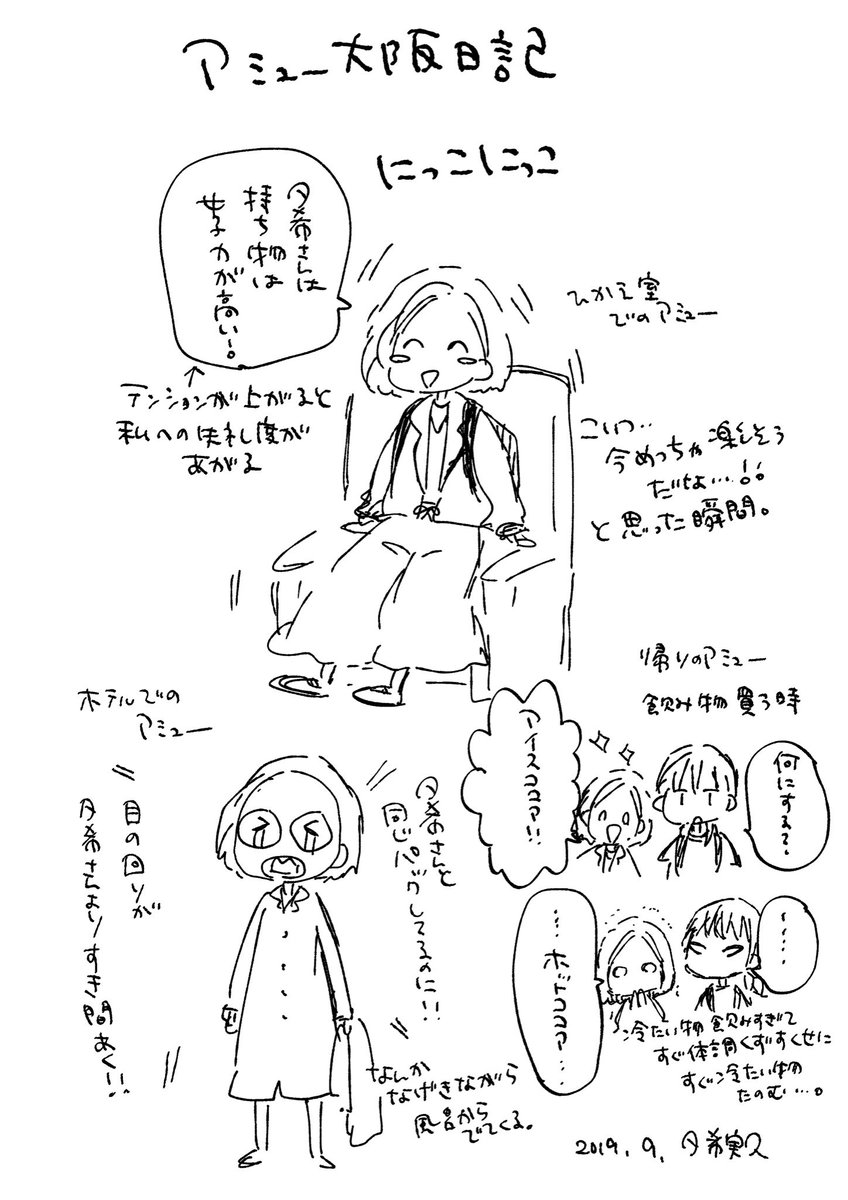 アミュー大阪日記
にっこにっこ
夕希さんは
持ち物は
女子力が高い!。
↑
テンションが上がると
私への失礼度が
あがる
ひかえ室
でのアミュー
こいつ…
今めっちゃ楽しそう
だなよ…!!
と思った瞬間。
帰りのアミュー
飲み物買う時
何にする?
アイスココア!!
……
…ホットココア…
冷たい物飲みすぎて
すぐ体調くずすくせに
すぐ冷たい物
たのむ…。
ホテルでの
アミュー
夕希さんと
同じパックしてるのに!!
目の回りが
夕希さんよりすき間あく!!
なんか
なげきながら
風呂から
でてくる。
2019.9. 夕希実久